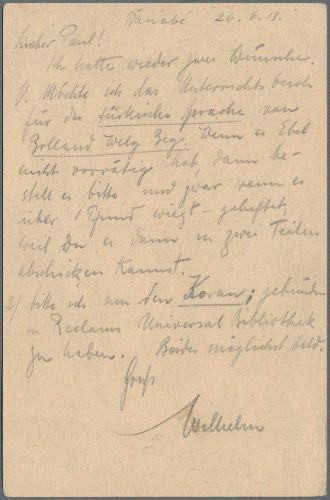 26.6.18.
Lieber Paul!
Ich hätte wieder zwei Wünsche.
1. Möchte ich das Unterrichtsbuch
für die türkische Sprache von
Bolland Welg Beg. Wenn es Ebel
nicht vorrätig hat, dann be-
stell es bitte, und zwar wenn es
über 1 Pfund wiegt – geheftet,
weil Du es dann in zwei Teilen
abschicken kannst.
2) bitte ich um den Koran; gebunden
in Reclams Universal Bibliothek
zu haben. Beides möglichst bald.
Gruß
Wilhelm